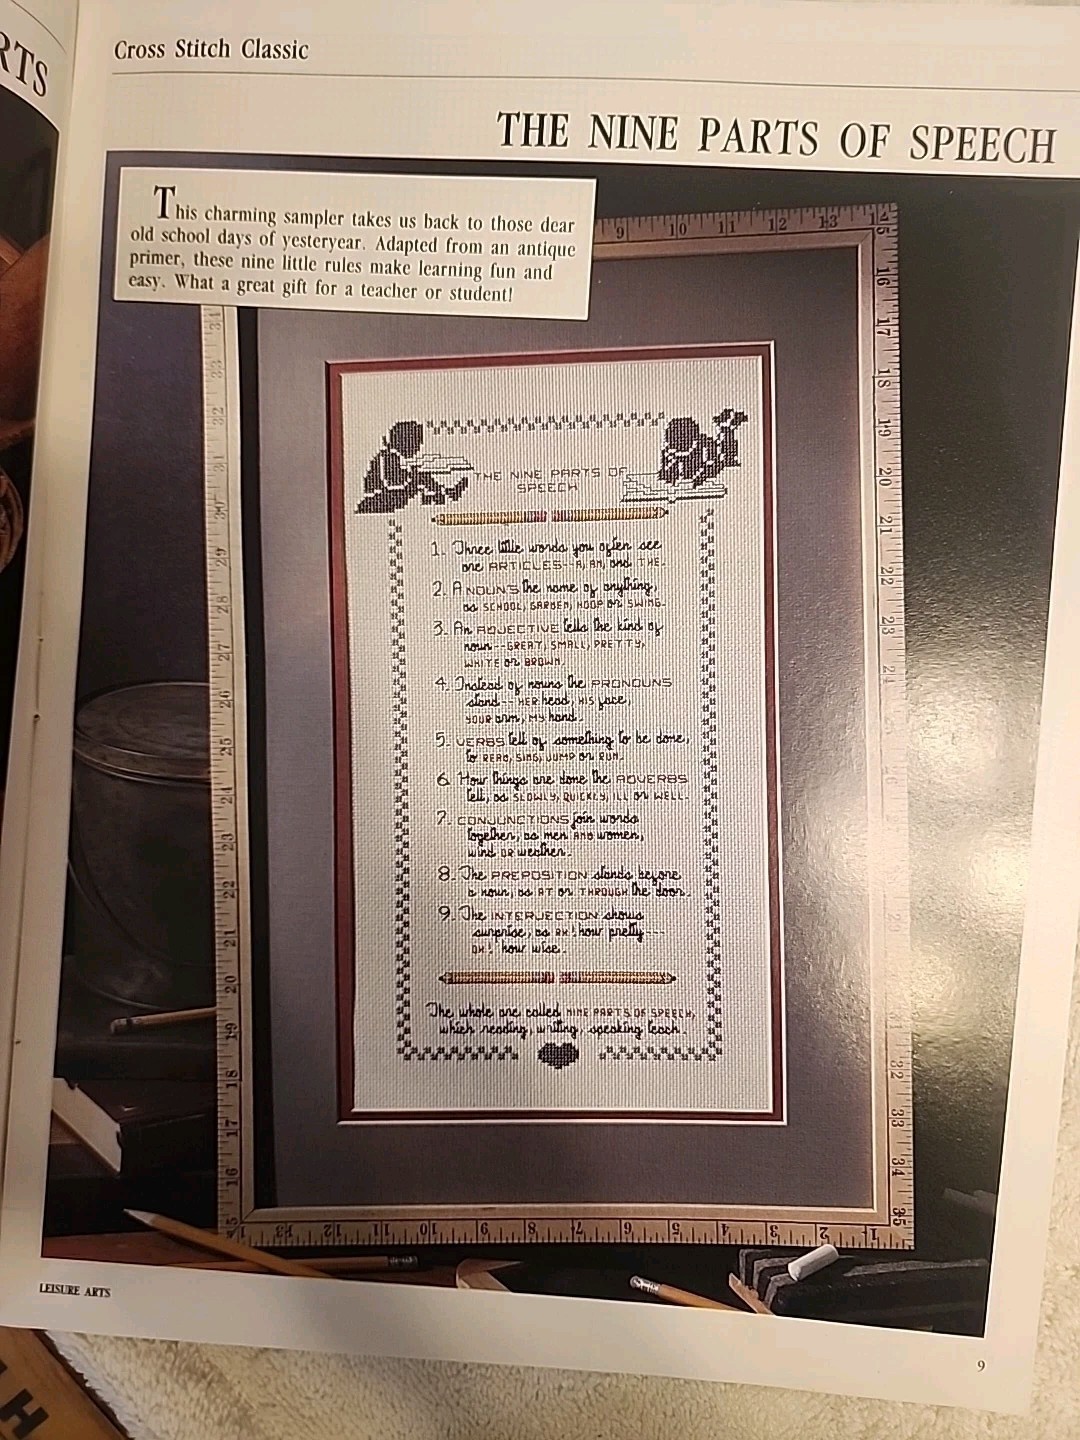 RTS
Cross Stitch Classic
THE NINE PARTS OF SPEECH
This charming sampler takes us back to those dear
old school days of yesteryear. Adapted from an antique
primer, these nine little rules make learning fun and
easy. What a great gift for a teacher or student!
THE NINE PARTS OF
SPEECH
1. Three little words you often see
are ARTICLES--A, AN, and THE.
2. A NOUN'S the name of anything,
as SCHOOL, GARDEN, HOOP or SWING.
3. An ADJECTIVE tells the kind of
noun--GREAT, SMALL, PRETTY,
WHITE or BROWN.
4. Instead of nouns the PRONOUNS
stand--HER head, HIS face,
YOUR arm, MY hand.
5. VERBS tell of something to be done,
to READ, SING, JUMP or RUN.
6. How things are done the ADVERBS
tell, as SLOWLY, QUICKLY, ILL or WELL.
7. CONJUNCTIONS join words
together, as men AND women,
wind OR weather.
8. The PREPOSITION stands before
a noun, as AT or THROUGH the door.
9. The INTERJECTION shows
surprise, as AH! how pretty---
OH! how wise.
The whole are called NINE PARTS OF SPEECH,
which reading, writing, speaking teach.
LEISURE ARTS
9